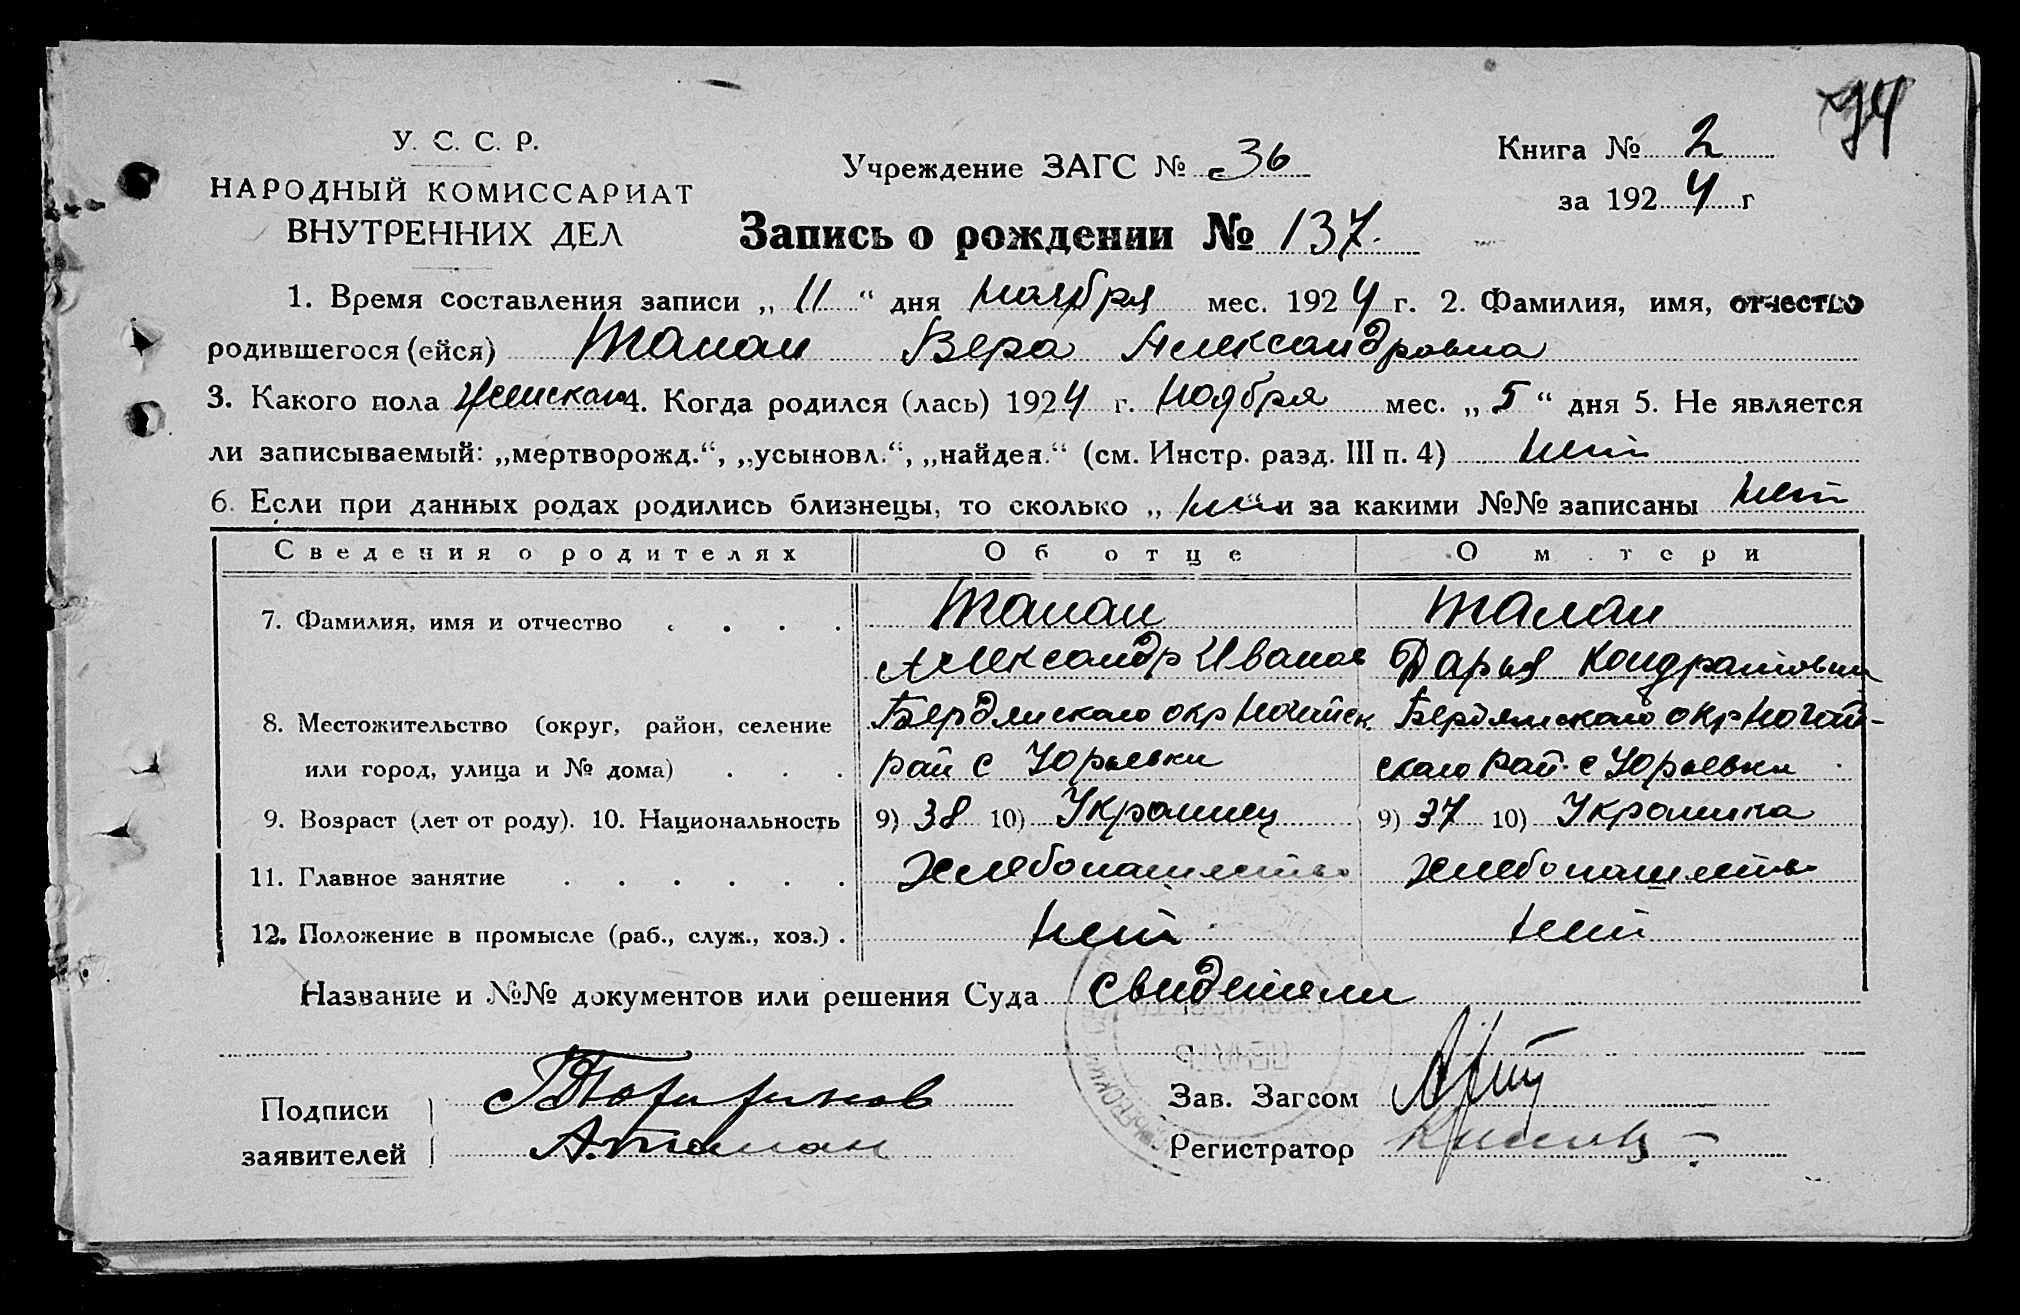 74
У. С. С. Р.
НАРОДНЫЙ КОМИССАРИАТ
ВНУТРЕННИХ ДЕЛ
Учреждение ЗАГС № 36
Книга № 2
за 1924 г
Запись о рождении № 137.
1. Время составления записи „ 11 “ дня ноября мес. 1924 г. 2. Фамилия, имя, отчество
родившегося (ейся) Талан Вера Александровна
3. Какого пола женскаго 4. Когда родился (лась) 1924 г. ноября мес. „ 5 “ дня 5. Не является
ли записываемый: „мертворожд.“, „усыновл.“, „найден.“ (см. Инстр. разд. III п. 4) нет
6. Если при данных родах родились близнецы, то сколько „ нет “ и за какими №№ записаны нет
Сведения о родителях Об отце О матери
7. Фамилия, имя и отчество . . . . Талан Талан
Александр Иванов Дарья Кондратовна
8. Местожительство (округ, район, селение Бердянскаго окр Ногайск Бердянскаго окр Ногай-
или город, улица и № дома) . . . рай с Юрьевки скаго рай. с Юрьевки
9. Возраст (лет от роду). 10. Национальность 9) 38 10) Украинец 9) 37 10) Украинка
11. Главное занятие . . . . . . Хлебопашество хлебопашество
12. Положение в промысле (раб., служ., хоз.) . Нет Нет
Название и №№ документов или решения Суда свидетели
Подписи
заявителей А. Талан
Зав. Загсом
Регистратор